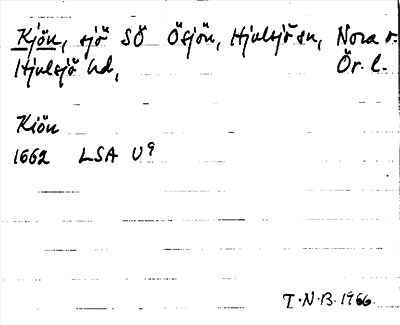 Kjön, sjö SÖ Ösjön, Hjulsjö sn, Nora o.
Hjulsjö hd, Ör. l.
Kiön
1662 LSA U9
I.N.B. 1966.